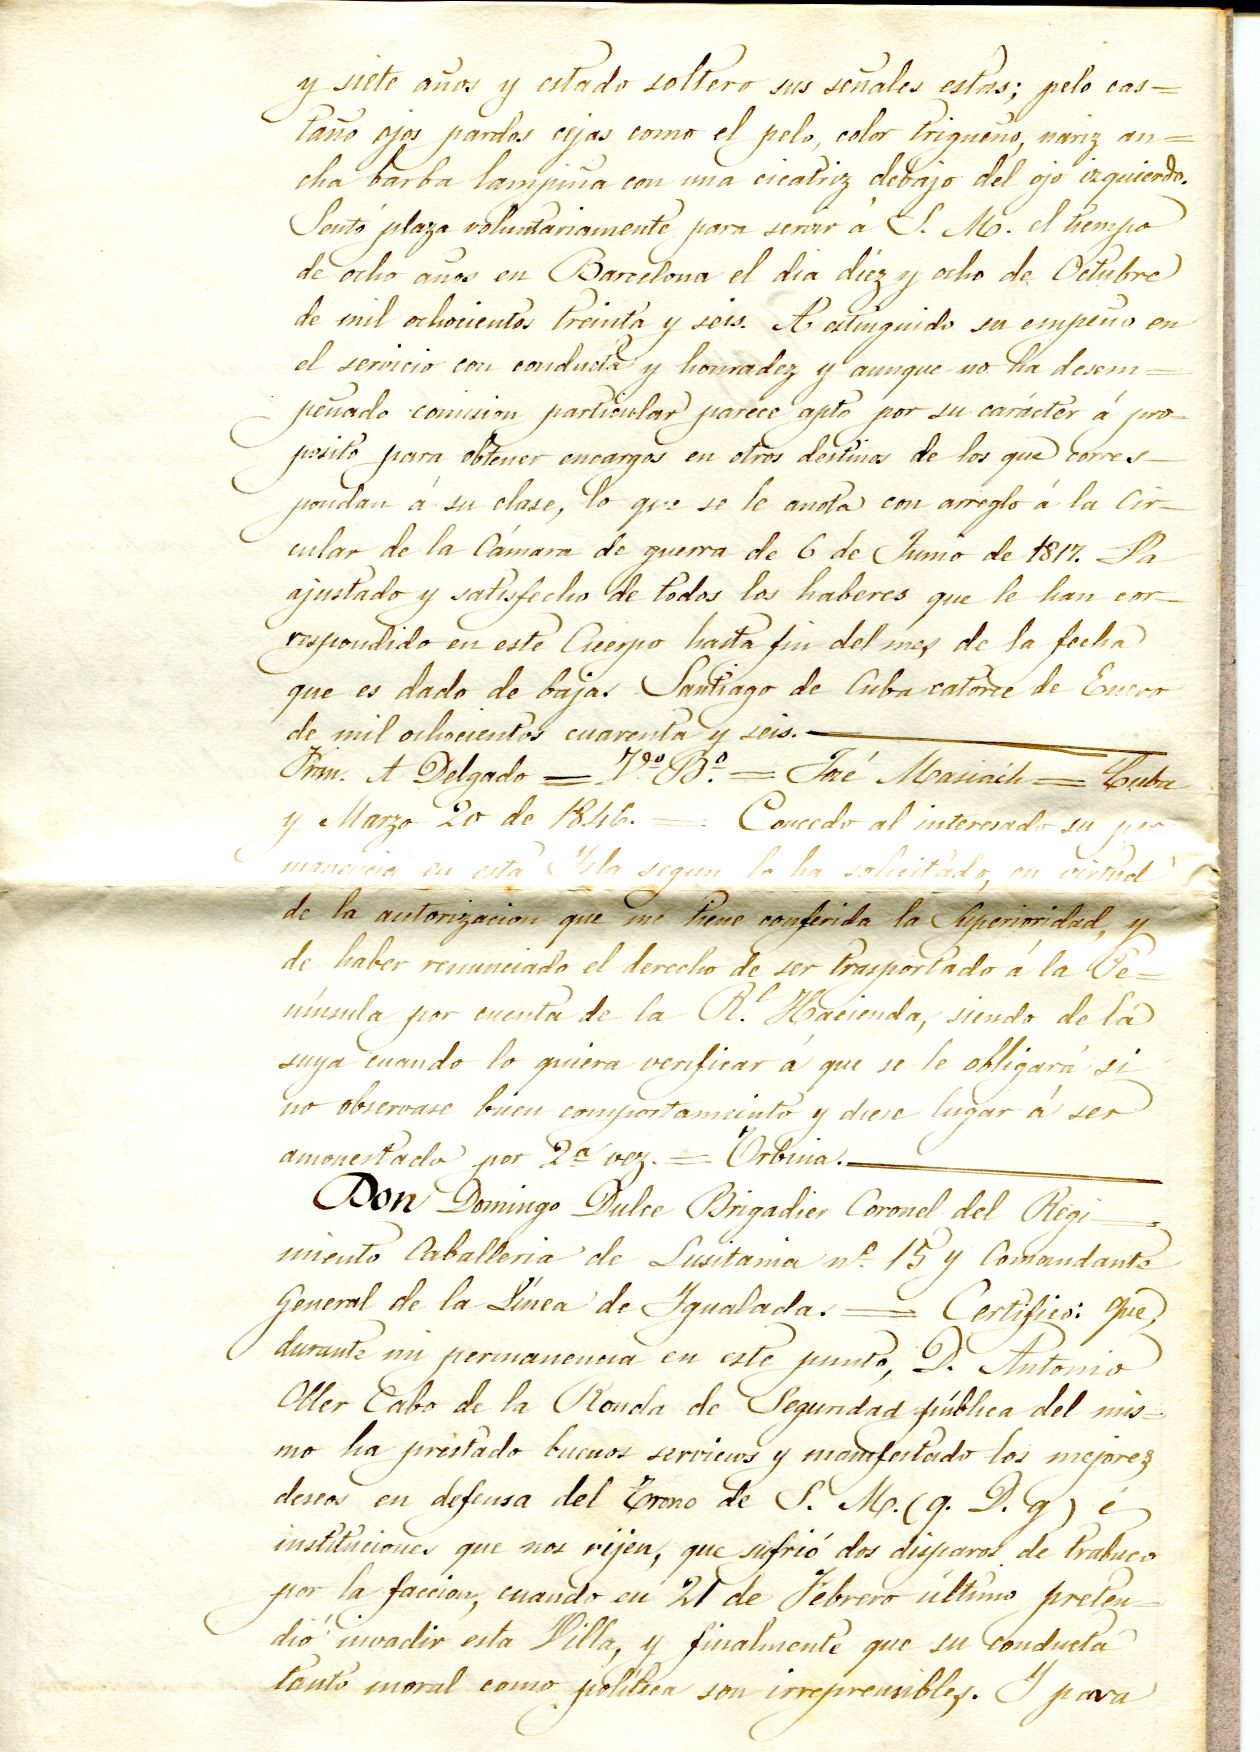 y siete años y estado soltero sus señales estas; pelo cas=
taño ojos pardos cejas como el pelo, color trigueño, nariz an=
cha barba lampiña con una cicatriz debajo del ojo izquierdo.
Sentó plaza voluntariamente para servir á S. M. el tiempo
de ocho años en Barcelona el dia diez y ocho de Octubre
de mil ochocientos treinta y seis. A estinguido su empeño en
el servicio con conducta y honradez y aunque no ha desem=
peñado comision particular parece apto por su carácter á pro=
posito para obtener encargos en otros destinos de los que corres=
pondan á su clase, lo que se le anota con arreglo á la Cir=
cular de la Cámara de guerra de 6 de Junio de 1817. Va
ajustado y satisfecho de todos los haberes que le han cor=
respondido en este Cuerpo hasta fin del mes de la fecha
que es dado de baja. Santiago de Cuba catorce de Enero
de mil ochocientos cuarenta y seis.
Fran. A Delgado = V.º B.º = José Masiach = Cuba
y Marzo 20 de 1846. = Concedo al interesado su per
manencia en esta Ysla segun lo ha solicitado, en virtud
de la autorizacion que me tiene conferida la Superioridad, y
de haber renunciado el derecho de ser trasportado á la Pe=
nínsula por cuenta de la R.l Hacienda, siendo de la
suya cuando lo quiera verificar á que se le obligará si
no observase buen comportamiento y diese lugar á ser
amonestado por 2ª vez. = Orbina.
Don Domingo Dulce Brigadier Coronel del Regi=
miento Caballeria de Lusitania nº 15 y Comandante
General de la Línea de Ygualada. = Certifico: Que,
durante mi permanencia en este punto, D. Antonio
Oller Cabo de la Ronda de Seguridad pública del mis=
mo ha prestado buenos servicios y manifestado los mejores
deseos en defensa del Trono de S. M. (q. D. g) é
instituciones que nos rijen, que sufrió dos disparos de trabuco
por la faccion, cuando en 21 de Febrero último preten=
dió invadir esta Villa, y finalmente que su conducta
tanto moral como política son irreprensibles. Y para